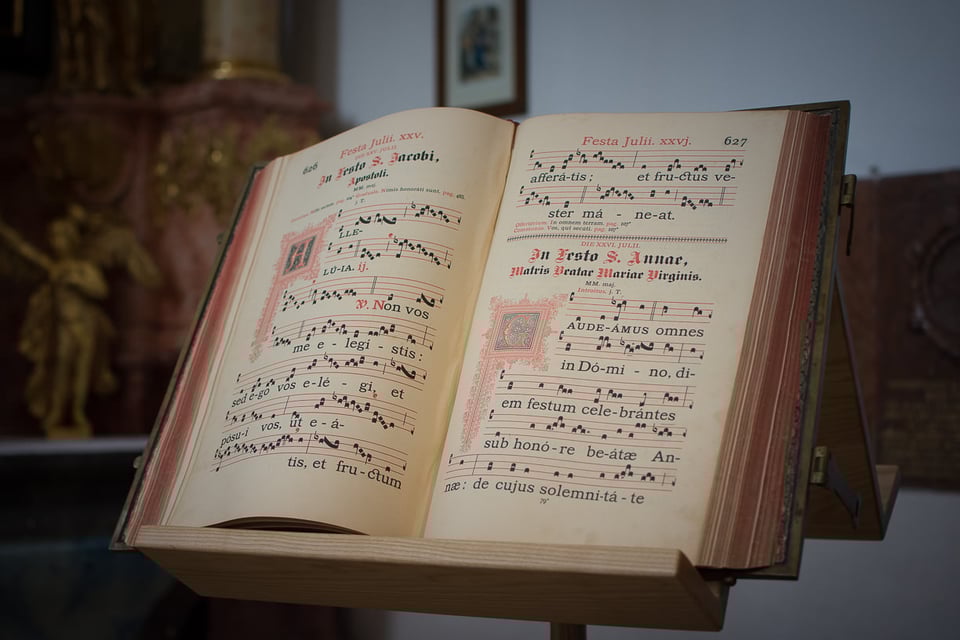 626
Festa Julii. xxv.
DIE XXV. JULII.
In Festo S. Jacobi,
Apostoli.
MM. maj.
Graduale. Nimis honorati sunt. pag.
LLE-
LÚ-IA. ij.
℣. Non vos
me e - legi - stis:
sed e-go vos e-lé - gi, et
posu-i vos, ut e-á-
tis, et fru-ctum
Festa Julii. xxvj.
627
afferá-tis; et fru-ctus ve-
ster má - ne-at.
Offertorium. In omnem terram. pag.
Communio. Vos, qui secuti. pag.
DIE XXVI. JULII.
In Festo S. Annae,
Matris Beatae Mariae Virginis.
MM. maj.
Introitus. j. T.
G
AUDE-ÁMUS omnes
in Dó-mi - no, di-
em festum cele-brántes
sub honó-re be-átæ An-
næ: de cujus solemni-tá-te
79*